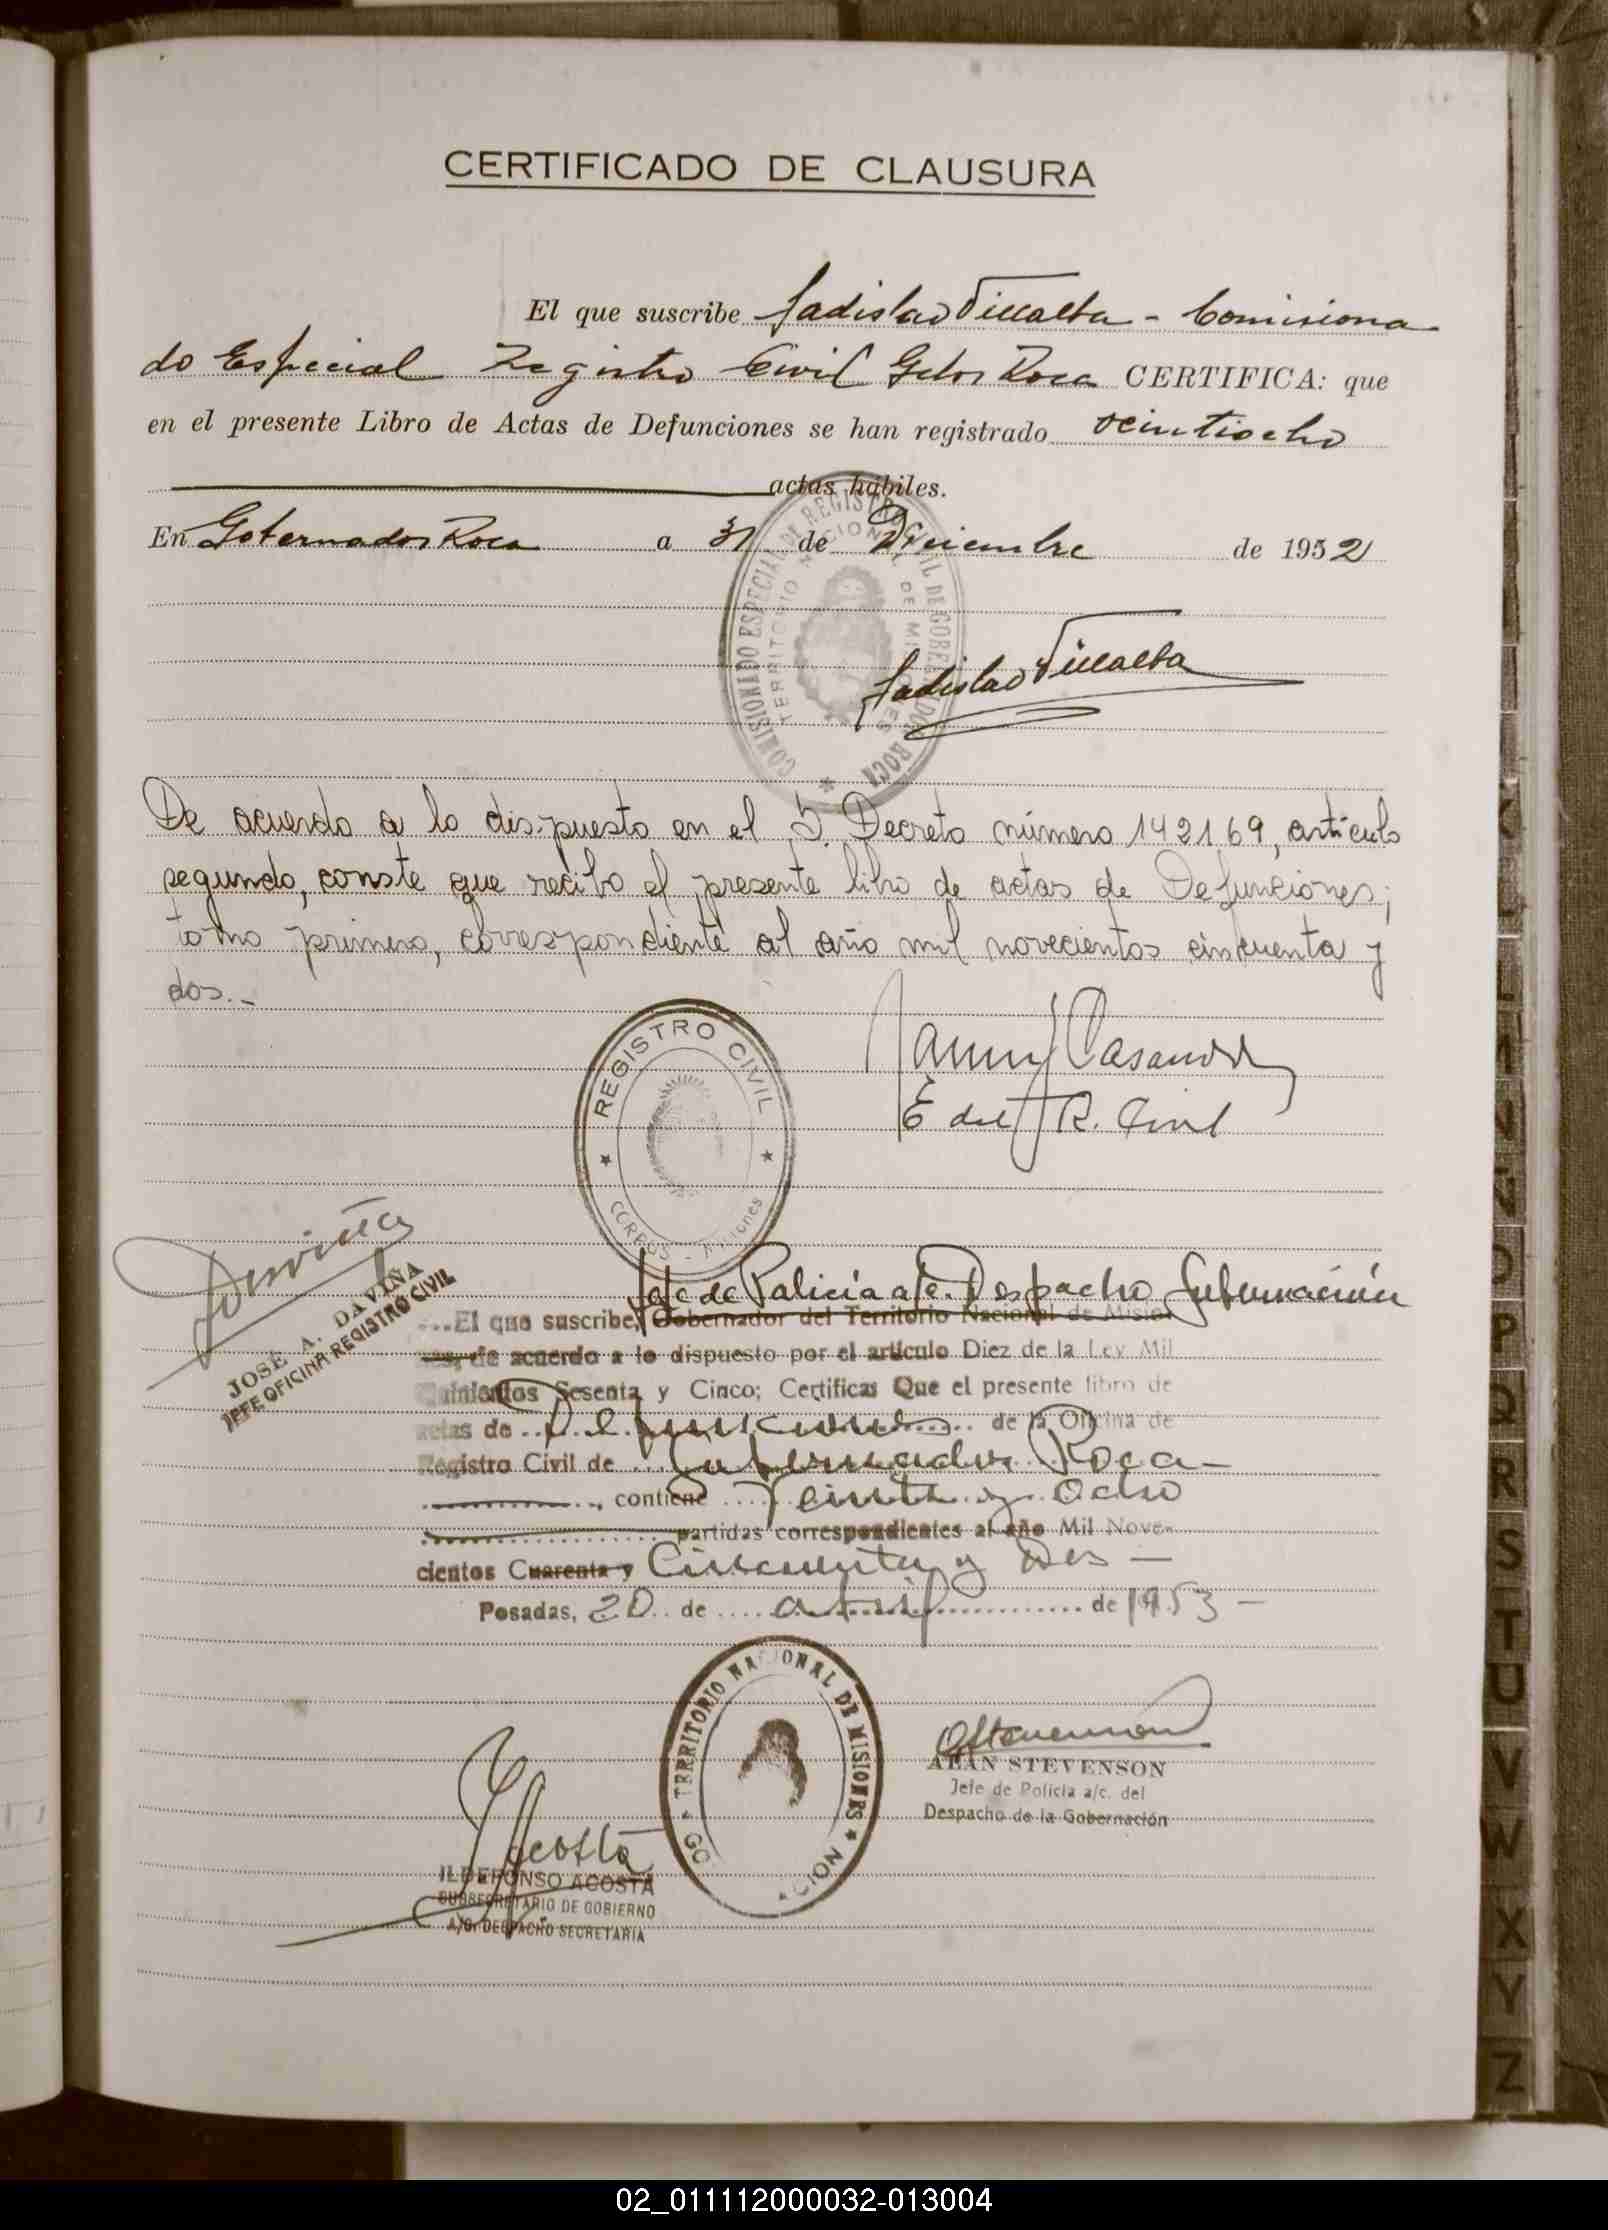 CERTIFICADO DE CLAUSURA
El que suscribe Ladislao Villalba - Comisiona
do Especial Registro Civil Gdor Roca CERTIFICA: que
en el presente Libro de Actas de Defunciones se han registrado veintiocho
actas hábiles.
En Gobernador Roca a 31 de Diciembre de 1952
COMISIONADO ESPECIAL DE REGISTRO CIVIL DE GOBERNADOR ROCA
TERRITORIO NACIONAL DE MISIONES
Ladislao Villalba
De acuerdo a lo dispuesto en el S. Decreto número 142169, artículo
segundo, conste que recibo el presente libro de actas de Defunciones;
tomo primero, correspondiente al año mil novecientos cincuenta y
dos.-
Casanova
E del R. Civil
REGISTRO CIVIL
CORPUS - Misiones
Daviña
JOSE A. DAVIÑA
JEFE OFICINA REGISTRO CIVIL
Jefe de Policía a/c. Despacho Gobernación
...El que suscribe, Gobernador del Territorio Nacional de Misio
nes, de acuerdo a lo dispuesto por el artículo Diez de la Ley Mil
Quinientos Sesenta y Cinco; Certificas Que el presente libro de
actas de Defunciones de la Oficina de
Registro Civil de Gobernador Roca -
contiene Veinte y Ocho
partidas correspondientes al año Mil Nove-
cientos Cuarenta y Cincuenta y Dos -
Posadas, 20 de abril de 1953 -
TERRITORIO NACIONAL DE MISIONES
GO CION
Acosta
ILDEFONSO ACOSTA
SUBSECRETARIO DE GOBIERNO
A/C. DESPACHO SECRETARIA
AStevenson
ALAN STEVENSON
Jefe de Policía a/c. del
Despacho de la Gobernación
L
M
N
Ñ
O
P
Q
R
S
T
U
V
W
X
Y
Z
02_011112000032-013004